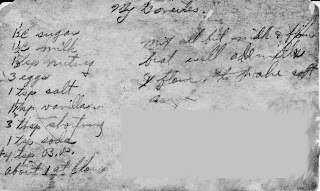 My Donuts
1½C sugar
1½C milk
1½tsp nutmeg
3 eggs
1 tsp salt
1½tsp vanilla
3 tbsp shortning
1 tsp soda
tsp B.P.
about 1 qt flour
milk & flour
beat well add milk
& flour, to make soft